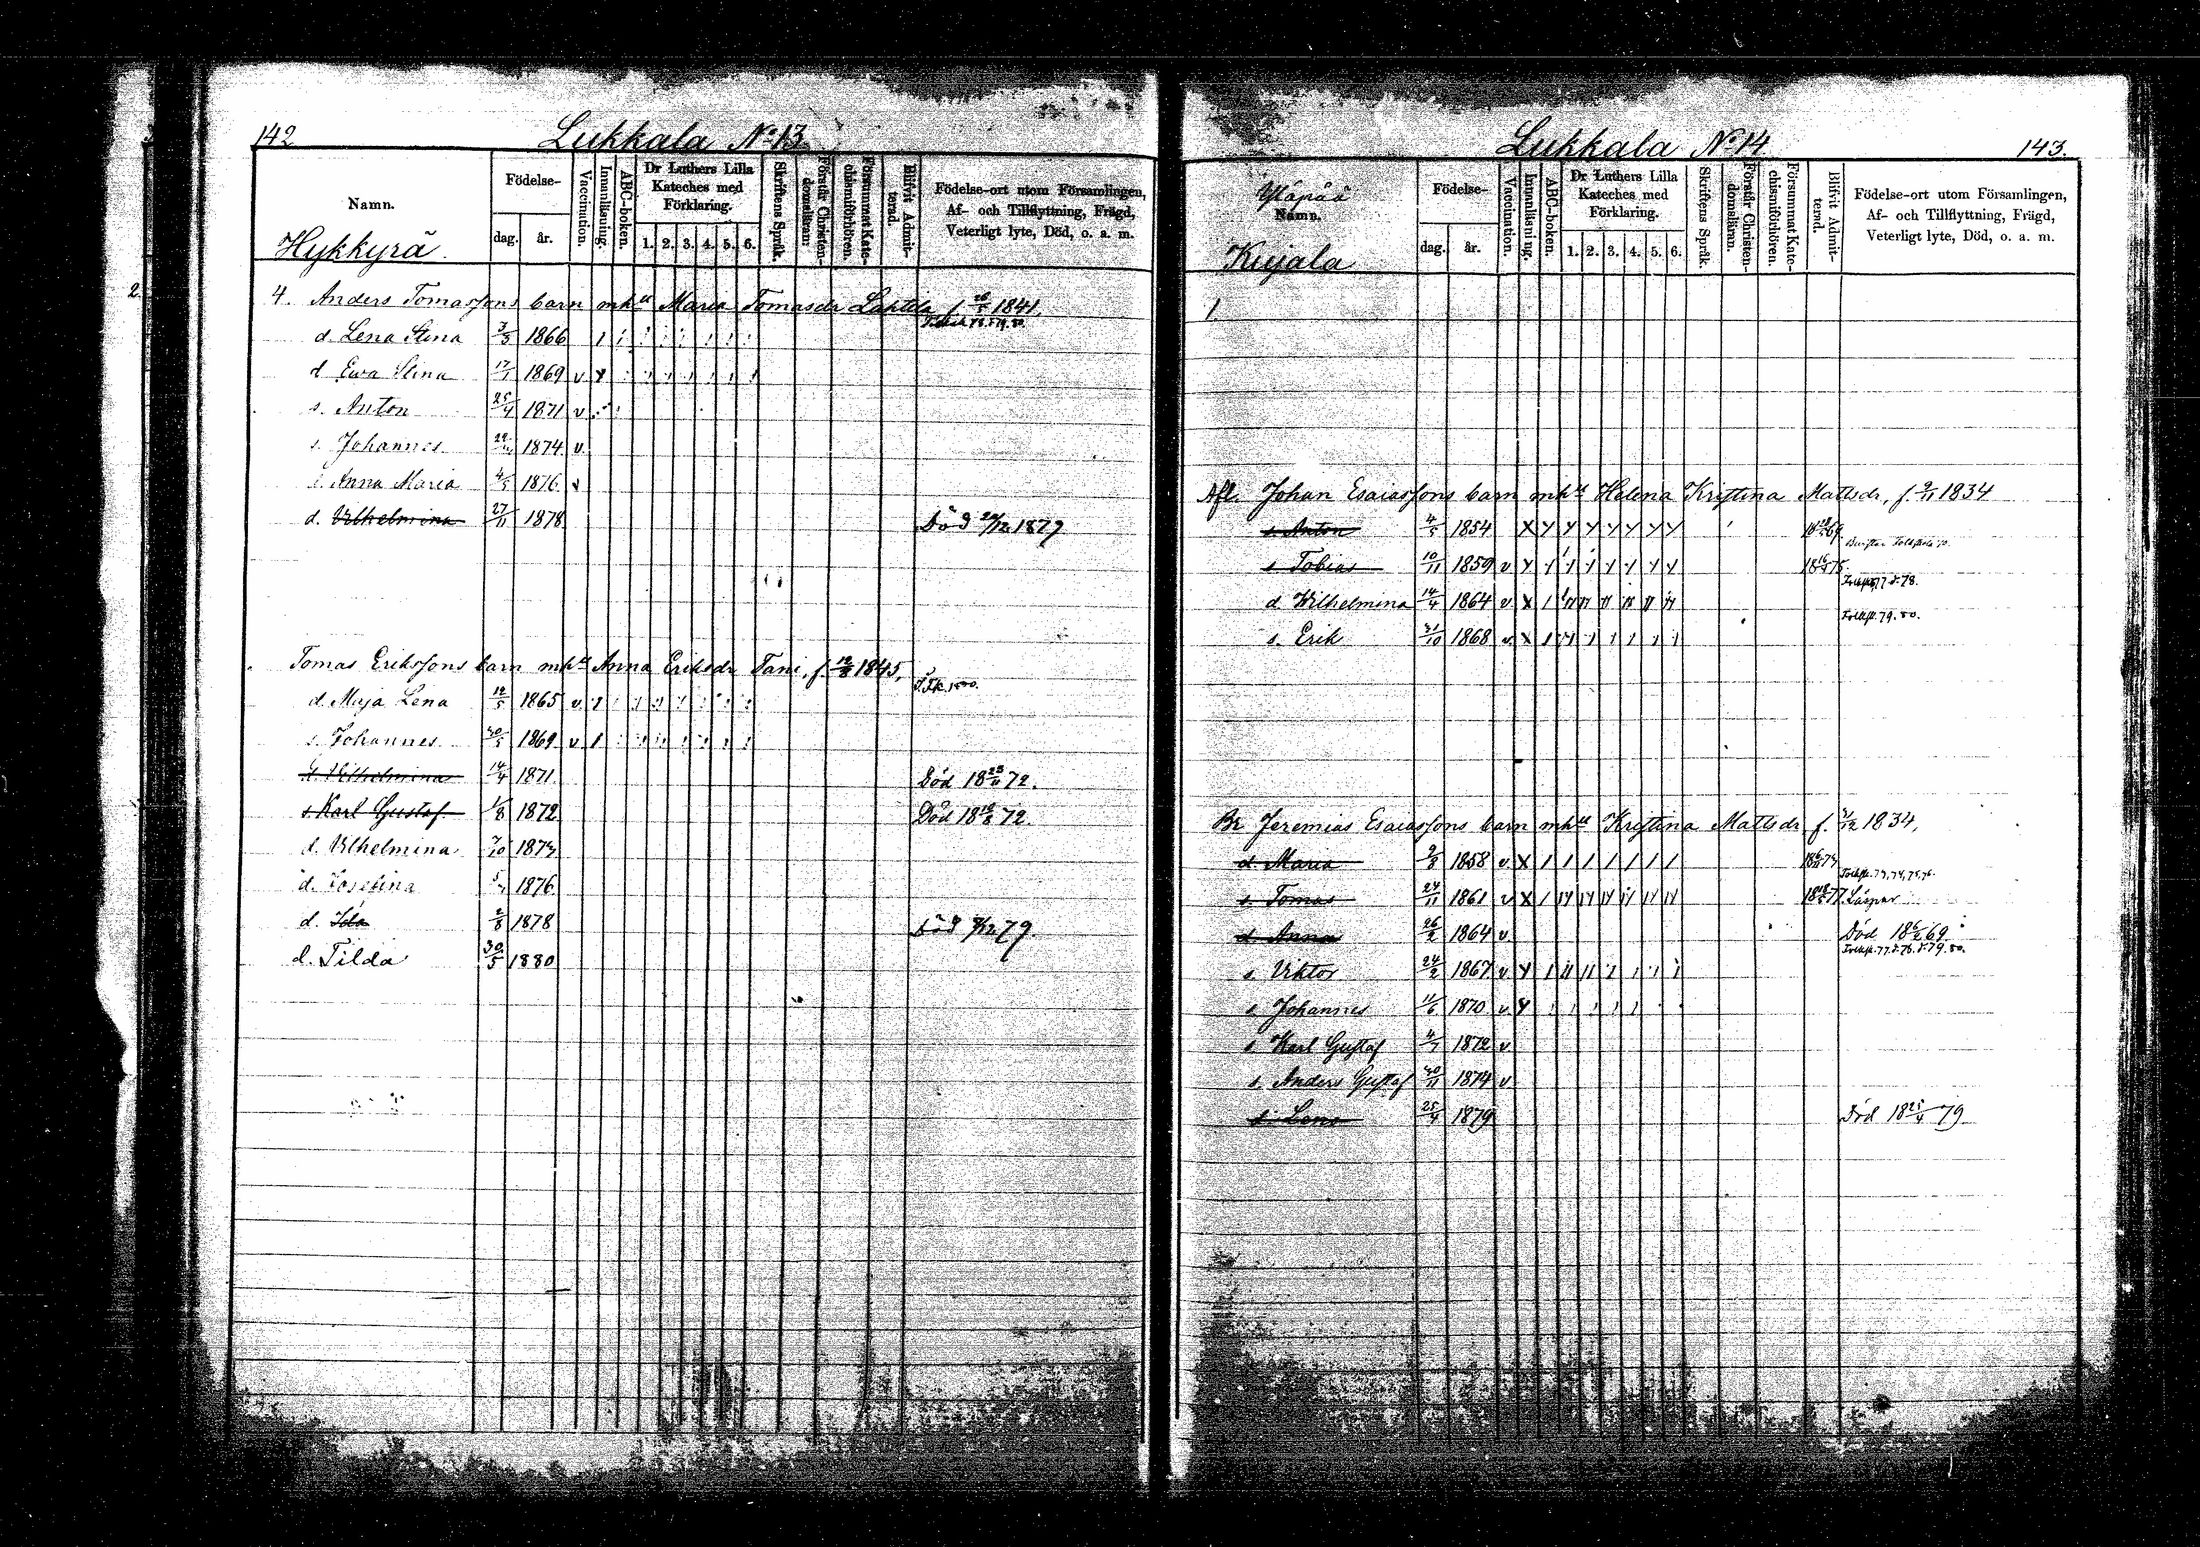 142
Lukkala No 13
Namn.
Hykkyrä
Födelse-
dag. år.
Vaccination.
Innanläsning.
ABC-boken.
Dr Luthers Lilla
Kateches med
Förklaring.
1. 2. 3. 4. 5. 6.
Skriftens Språk.
Förstår Christen-
domsläran.
Försummat Kate-
chismiförhören.
Blifvit Admit-
terad.
Födelse-ort utom Församlingen,
Af- och Tillflyttning, Frägd,
Veterligt lyte, Död, o. a. m.
4. Anders Tomassons barn m h u Maria Tomasdr Lahtila f. 1841.
d. Lena Stina 3/3 1866
d Ewa Stina 17/1 1869 v
s. Anton 25/4 1871 v
s. Johannes 1874 v
Anna Maria 4/5 1876 v
d. Vilhelmina 27/11 1878 Död 1879
Tomas Erikssons barn m h u Anna Eriksdr Tani, f. 1845,
d. Maja Lena 12/5 1865 v
s. Johannes 30/5 1869 v
d Vilhelmina 14/4 1871 Död 18 72.
s. Karl Gustaf 1/8 1872 Död 18 72.
d. Vilhelmina 7/10 1873
d. Josefina 1876
d. Ida 2/8 1878 Död 79.
d. Tilda 30/5 1880
Lukkala No 14
143.
Yläpää
Namn.
Kujala
Födelse-
dag. år.
Vaccination.
Innanläsning.
ABC-boken.
Dr Luthers Lilla
Kateches med
Förklaring.
1. 2. 3. 4. 5. 6.
Skriftens Språk.
Förstår Christen-
domsläran.
Försummat Kate-
chismiförhören.
Blifvit Admit-
terad.
Födelse-ort utom Församlingen,
Af- och Tillflyttning, Frägd,
Veterligt lyte, Död, o. a. m.
1
Afl. Johan Esaiassons barn m h u Helena Kristina Mattsdr, f. 9/11 1834
s. Anton 4/5 1854
s Tobias 10/11 1859 v
d Wilhelmina 14/4 1864 v
Folksk. 79. 80.
s. Erik 31/10 1868 v
Br Jeremias Esaiassons barn m h u Kristina Mattsdr f. 1834,
d Maria 9/8 1858 v
Folksk. 73, 74, 75, 76.
s. Tomas 24/11 1861 v
d. Anna 26/2 1864 v Död 18 6/2 69
s. Viktor 24/2 1867 v
s Johannes 11/6 1870 v
s Karl Gustaf 1872 v
s. Anders Gustaf 30/11 1874 v
Lena 25/4 1879 Död 18 25/4 79